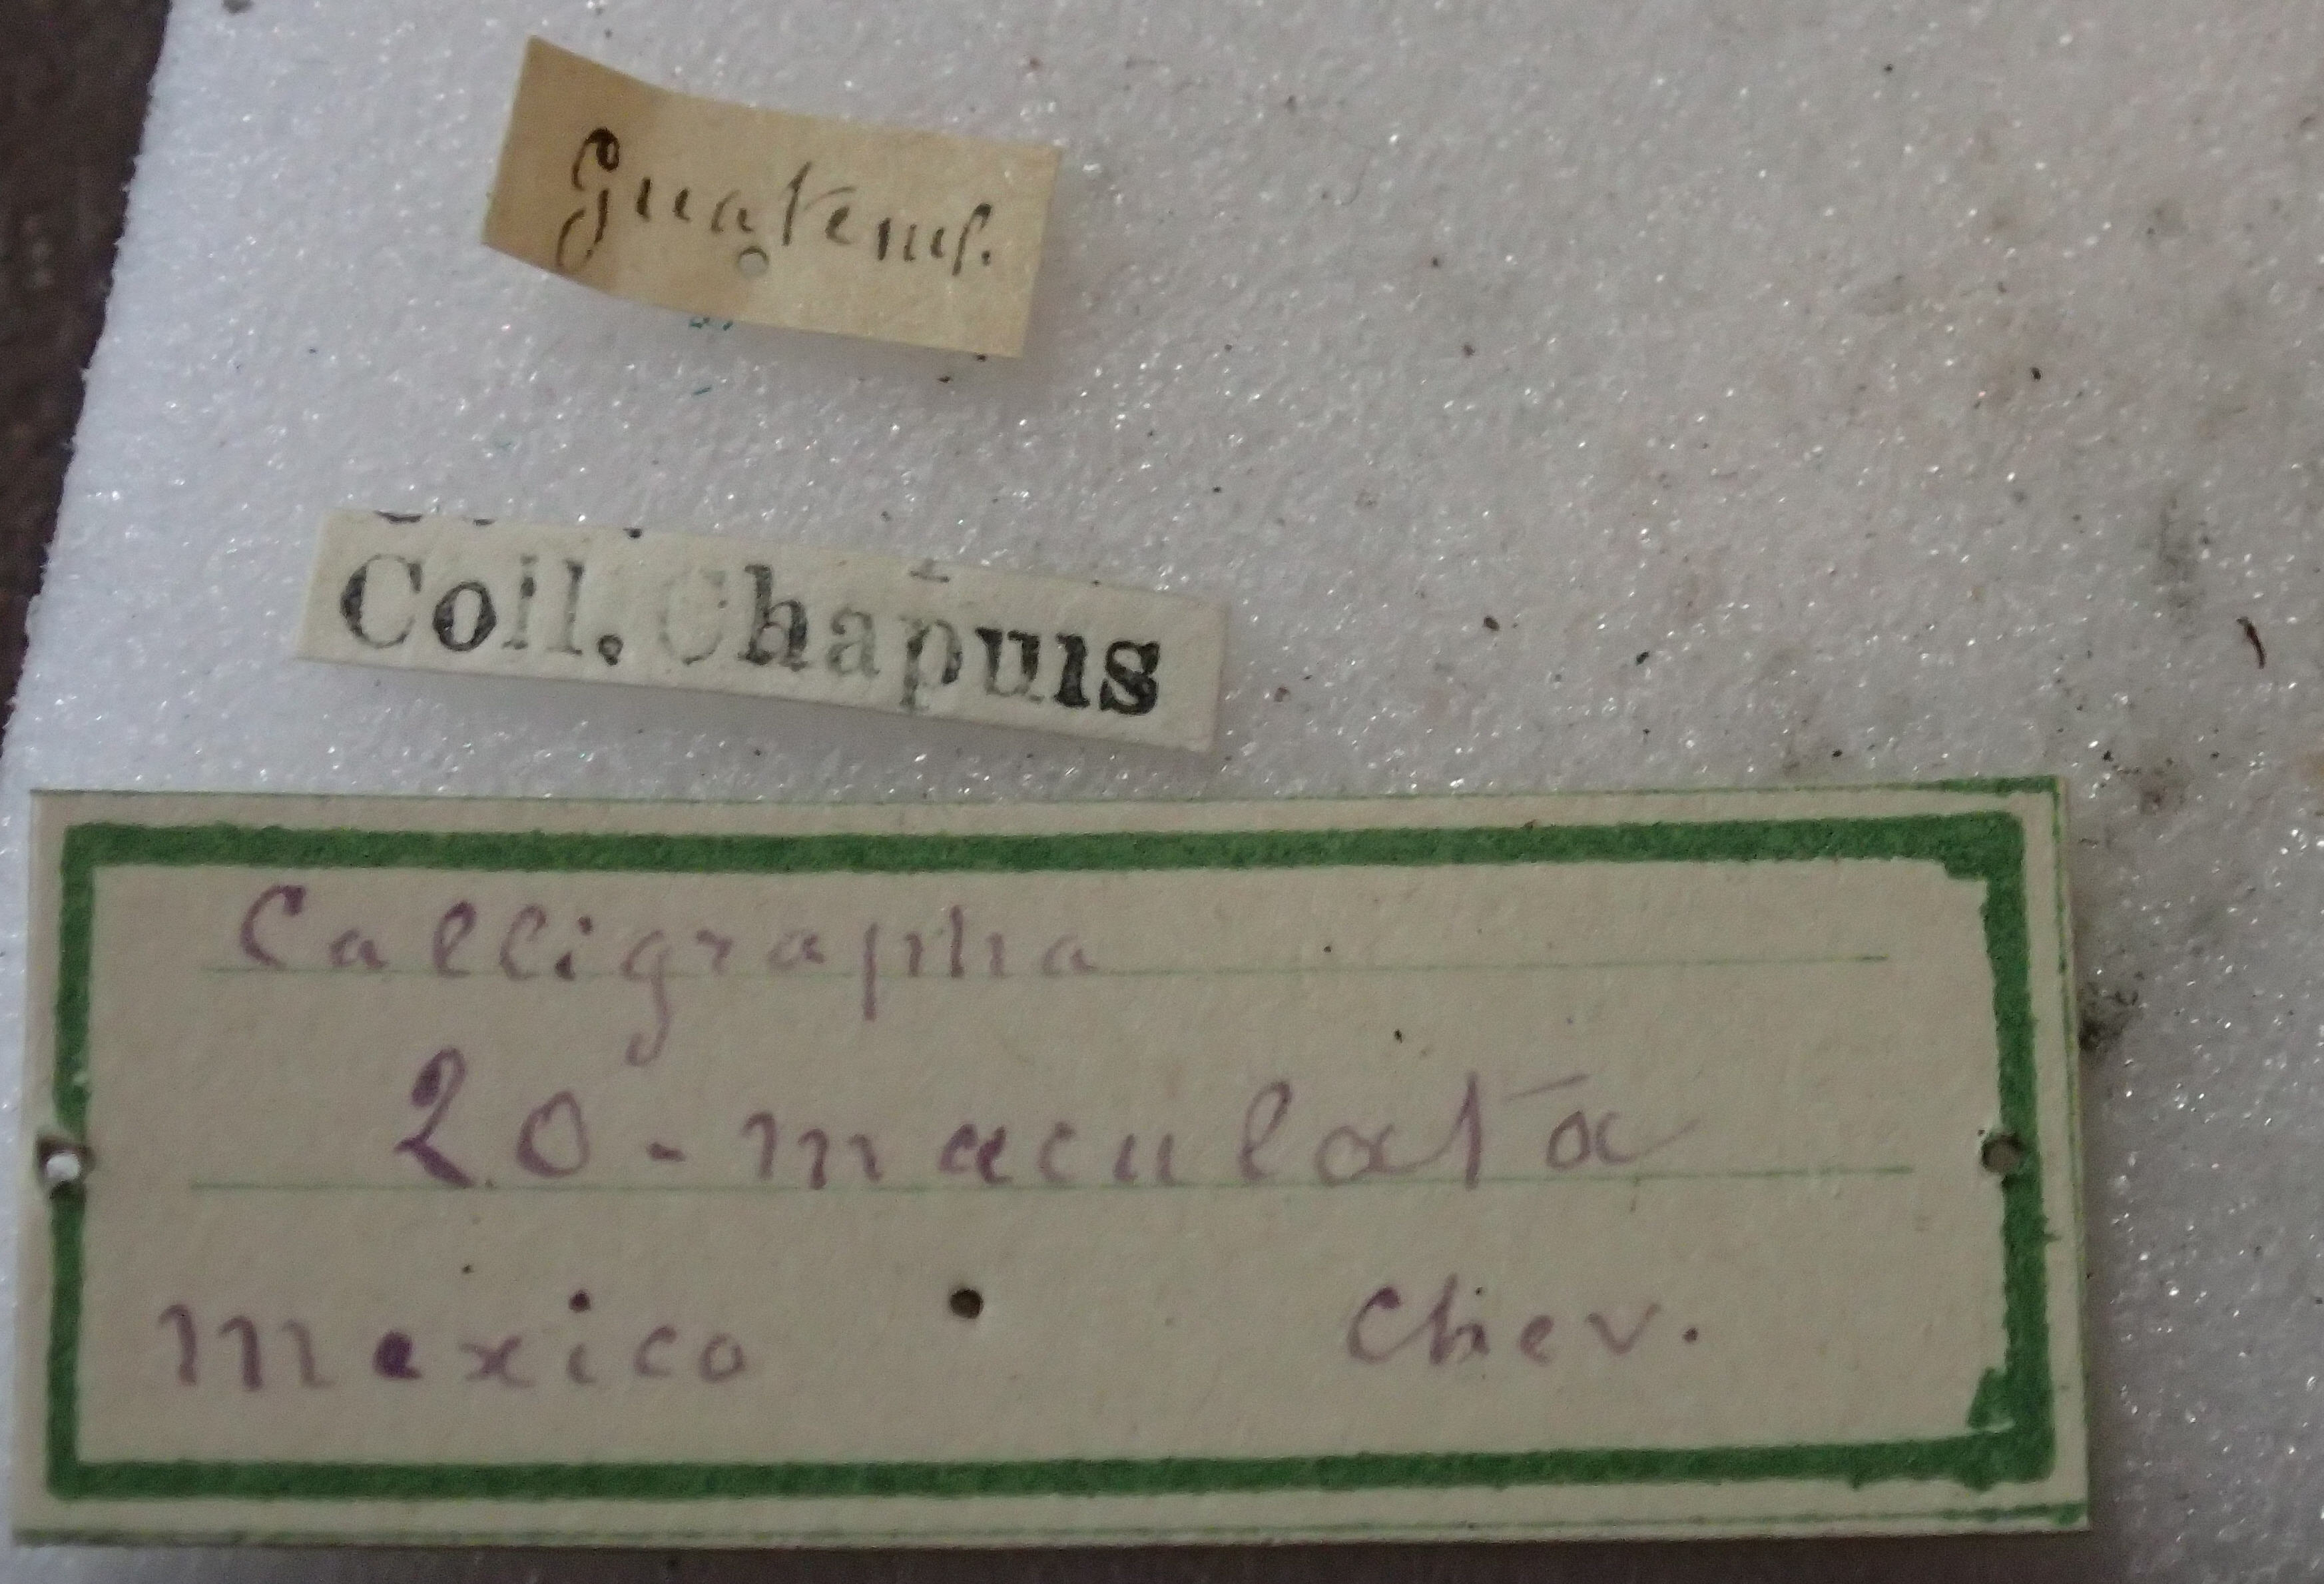 Guateml.
Coll. Chapuis
Calligrapha
20-maculata
Mexico Chev.